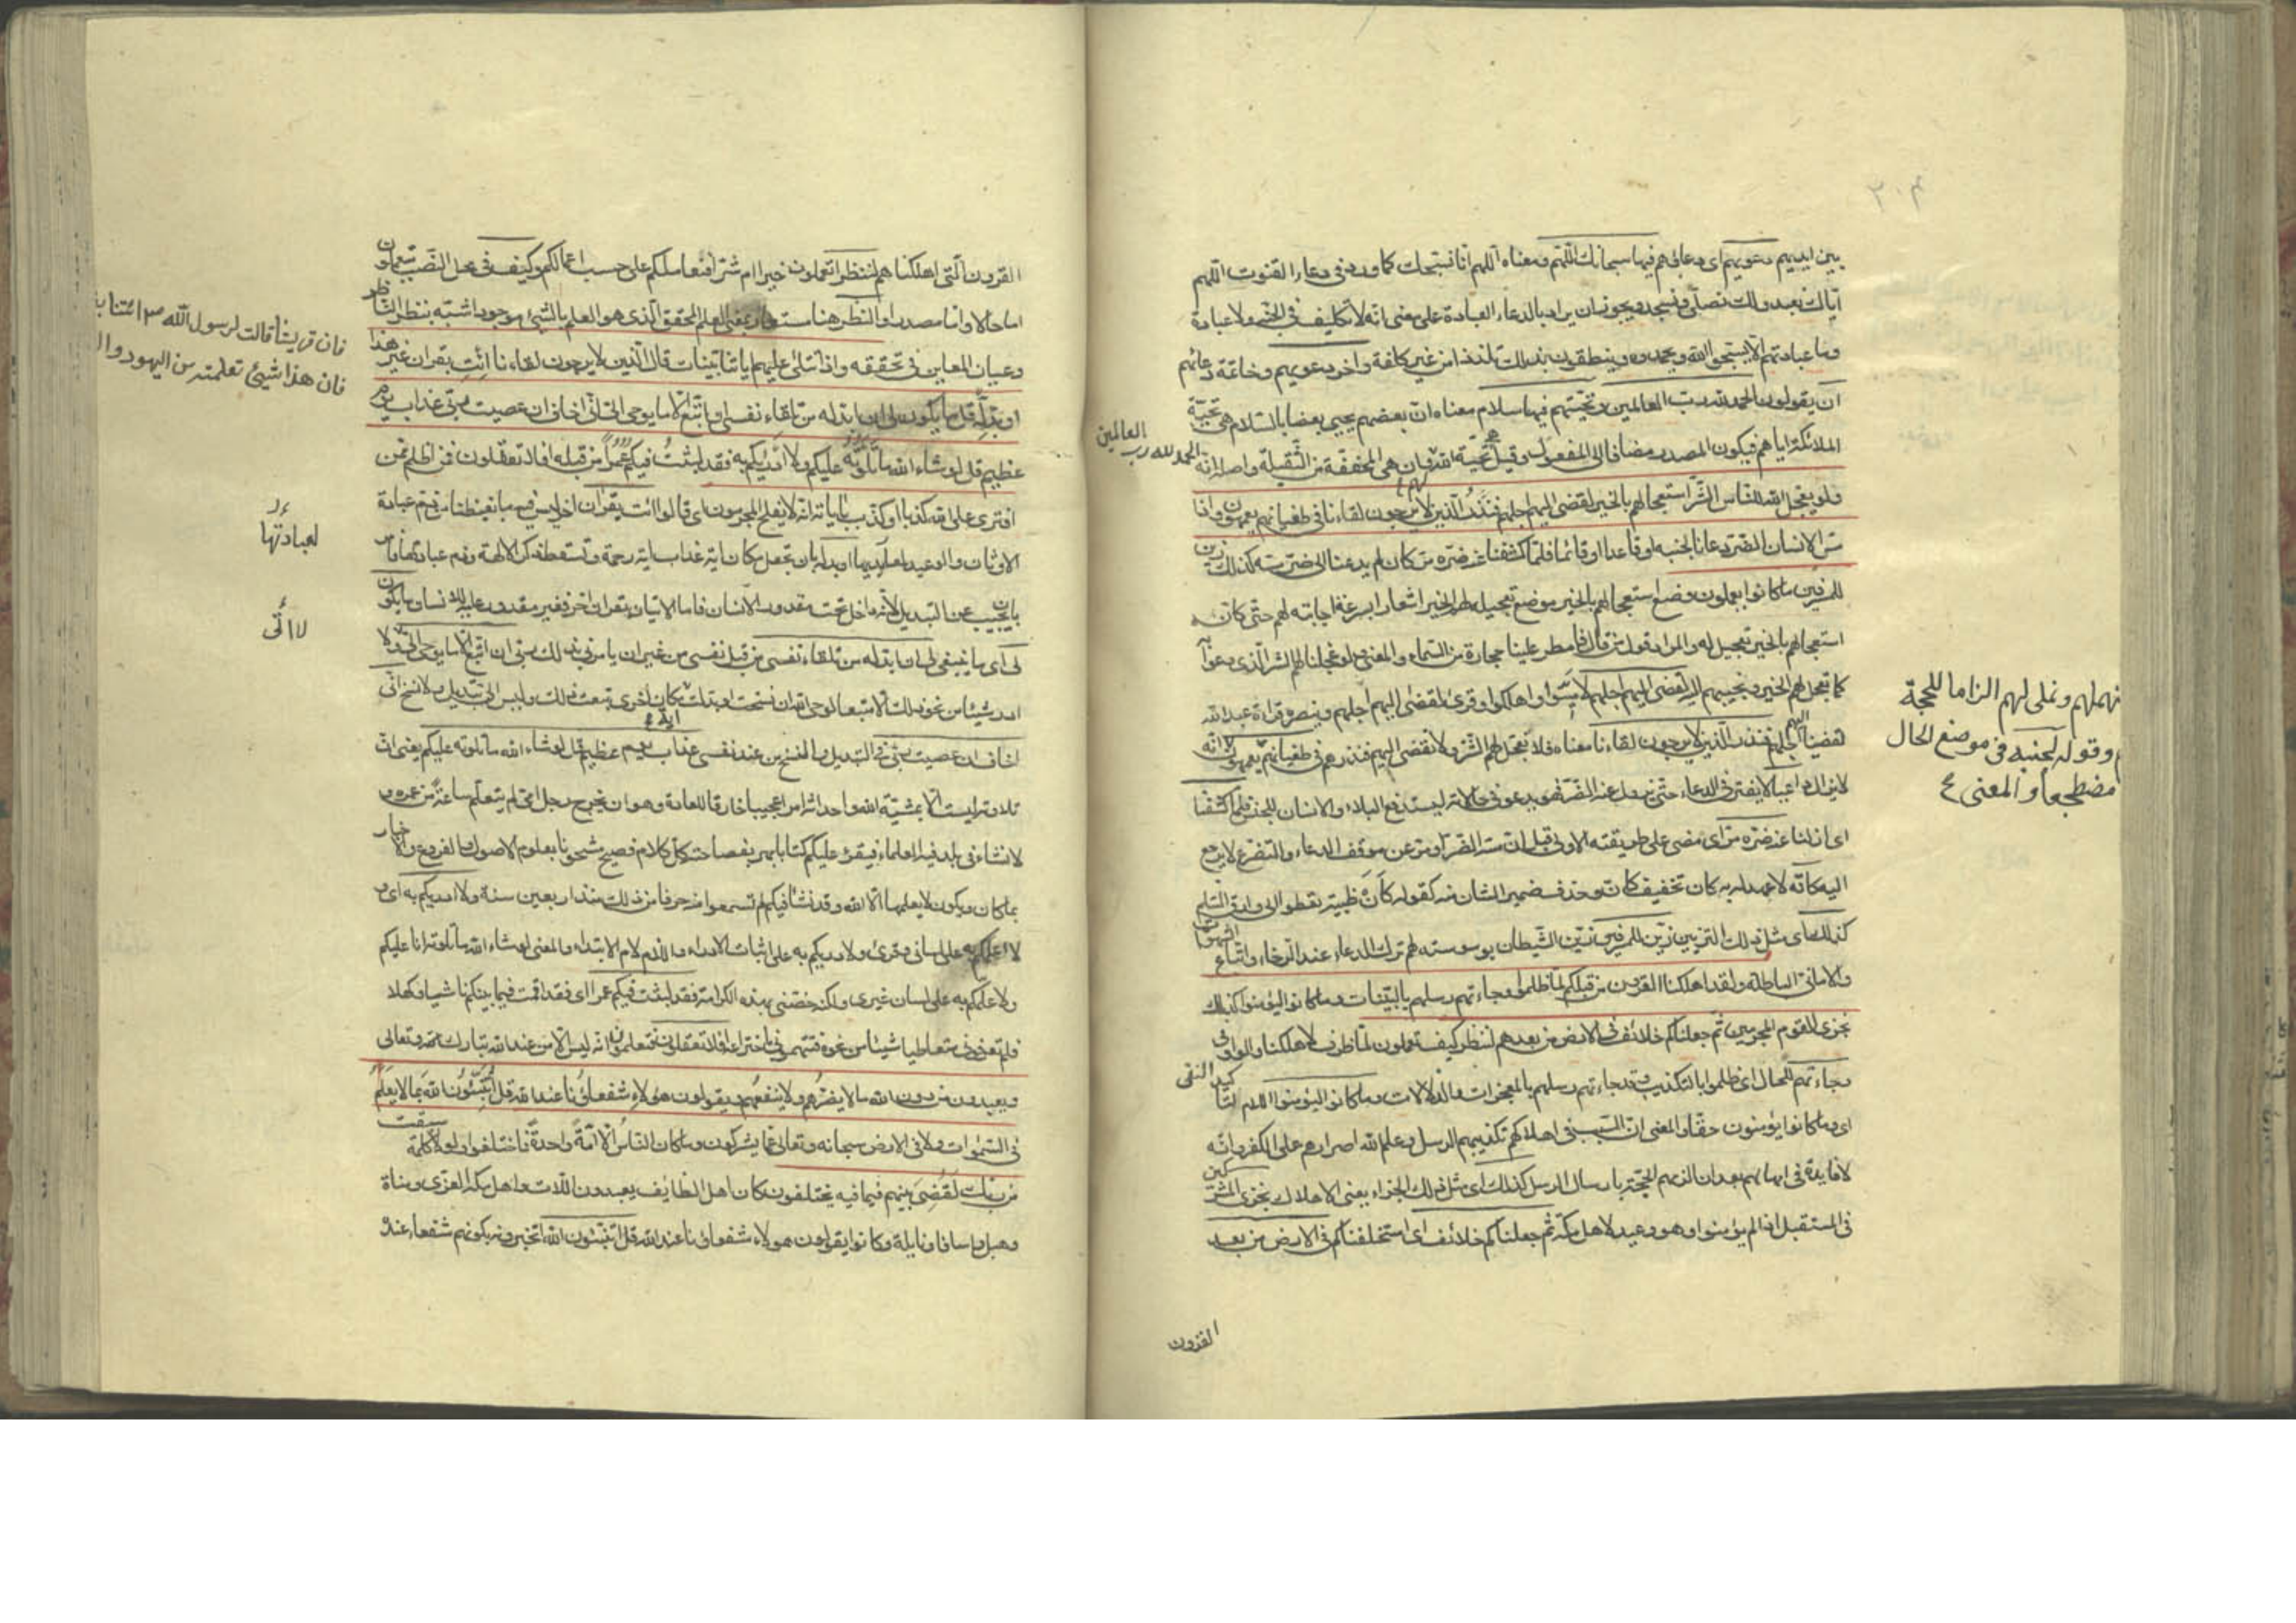 بين ايديهم دعويهم اى دعاؤهم فيها سبحانك اللهم ومعناه اللهم انا نسبحك كما ورد فى دعاء القنوت اللهم
اياك نعبد ولك نصلى ونسجد ويجوز ان يراد بالدعاء العبادة على معنى انه لا تكليف فى الجنة ولا عبادة
وما عبادتهم الا يسبحوا الله ويحمدوه وينطقون بذلك تلذذا من غير كلفة وآخر دعويهم وخاتمة دعائهم
ان يقولوا الحمد لله رب العالمين وتحيتهم فيها سلام معناه ان بعضهم يحيى بعضا بالسلام هى تحية
الملائكة اياهم فيكون المصدر مضافا الى المفعول وقيل هى تحية الله لهم وان هى المخففة من الثقيلة واصله انه
الحمد لله رب العالمين
ولو يعجل الله للناس الشر استعجالهم بالخير لقضى اليهم اجلهم فنذر الذين لا يرجون لقاءنا فى طغيانهم يعمهون واذا
مس الانسان الضر دعانا لجنبه او قاعدا او قائما فلما كشفنا عنه ضره مر كان لم يدعنا الى ضر مسه كذلك زين
للمسرفين ما كانوا يعملون وضع استعجالهم بالخير موضع تعجيله لهم الخير اشعارا بسرعة اجابته لهم حتى كان
استعجالهم بالخير تعجيل له والمراد قول من قال فامطر علينا حجارة من السماء والمعنى ولو عجلنا لهم الشر الذى دعوا به
كما نعجل لهم الخير ونجيبهم اليه لقضى اليهم اجلهم لاميتوا واهلكوا وقرئ لقضى اليهم اجلهم وينصره قراءة عبد الله
لقضينا اليهم اجلهم فنذر الذين لا يرجون لقاءنا معناه فلا نعجل لهم الشر ولا نقضى اليهم فنذرهم فى طغيانهم يعمهون
فنمهلهم ونملى لهم الزاما للحجة
وقوله لجنبه فى موضع الحال
مضطجعا والمعنى
لا يزال داعيا لا يفتر فى الدعاء حتى يزول عنه الضر فهو يدعو فى حالاته ليستدفع البلاء والانسان للجنس فلما كشفنا
اى ازلنا عنه ضره مر اى مضى على طريقته الاولى قبل ان مسه الضر او مر عن موقف الدعاء والتضرع لا يرجع
اليه كانه لا عهد له به كان تخفيف كان وحذف ضمير الشان منه كقوله كان ظبية تعطو الى وارق السلم
كذلك اى مثل ذلك التزيين زين للمسرفين زين الشيطان بوسوسته لهم ترك الدعاء عند الرخاء واتباع الشهوات
والامانى الباطلة ولقد اهلكنا القرون من قبلكم لما ظلموا وجاءتهم رسلهم بالبينات وما كانوا ليؤمنوا كذلك
نجزى القوم المجرمين ثم جعلناكم خلائف فى الارض من بعدهم لننظر كيف تعملون لما ظرف لاهلكنا والواو فى
وجاءتهم للحال اى ظلموا بالتكذيب وقد جاءتهم رسلهم بالمعجزات والدلالات وما كانوا ليؤمنوا اللام لتاكيد النفى
اى وما كانوا يؤمنون حقا والمعنى ان السبب فى اهلاكهم تكذيبهم الرسل وعلم الله اصرارهم على الكفر وانه
لا فايدة فى امهالهم بعد ان الزمهم الحجة بارسال الرسل كذلك اى مثل ذلك الجزاء يعنى الاهلاك نجزى المشركين
فى المستقبل اذا لم يؤمنوا وهو وعيد لاهل مكة ثم جعلناكم خلائف اى استخلفناكم فى الارض من بعد
القرون
القرون التى اهلكناهم لننظر اتعملون خيرا ام شرا فنعاملكم على حسب اعمالكم وكيف فى محل النصب بتعملون
اما حالا واما مصدرا والنظر هنا مستعار بمعنى العلم المحقق الذى هو العلم بالشئ موجودا شبه بنظر الناظر
وعيان المعاين فى تحققه واذا تتلى عليهم اياتنا بينات قال الذين لا يرجون لقاءنا ائت بقران غير هذا
فان قريشا قالت لرسول الله ص ائتنا
فان هذا شيئ تعلمته من اليهود
او بدله قل ما يكون لى ان ابدله من تلقاء نفسى ان اتبع الا ما يوحى الى انى اخاف ان عصيت ربى عذاب يوم
عظيم قل لو شاء الله ما تلوته عليكم ولا ادريكم به فقد لبثت فيكم عمرا من قبله افلا تعقلون فمن اظلم ممن
افترى على الله كذبا او كذب باياته انه لا يفلح المجرمون اى قالوا ائت بقران اخر ليس فيه ما يغيظنا من ذم عبادة
الاوثان والوعيد لعبادتها او بدله بان تجعل مكان اية عذاب اية رحمة وتسقط ذكر الالهة وذم عبادتها فامر
لعبادتها
بان يجيب عن التبديل لانه داخل تحت مقدور الانسان فاما الاتيان بقران اخر فغير مقدور عليه للانسان ما يكون
لا اتى
لى اى ما ينبغى لى ان ابدله من تلقاء نفسى من قبل نفسى من غير ان يامرنى بذلك ربى ان اتبع الا ما يوحى الى
اذر شيئا من نحو ذلك الا متبعا لوحى الله ان نسخت اية او بدلت مكان اخرى تبعت ذلك وليس الى تبديل ولا نسخ انى
اخاف ان عصيت ربى فى التبديل والنسخ من عند نفسى عذاب يوم عظيم قل لو شاء الله ما تلوته عليكم يعنى ان
تلاوته ليست الا بمشية الله واحداثه امرا عجيبا خارقا للعادة وهو ان يخرج رجل امى لم يتعلم ساعة من عمره
ولا نشاء فى بلد فيه العلماء فيقرء عليكم كتابا بهر بفصاحته كل كلام فصيح مشحونا بعلوم الاصول والفروع والاخبار
بما كان ويكون لا يعلمها الا الله وقد نشا فيكم لم تسمعوا منه حرفا من ذلك منذ اربعين سنة ولا ادريكم به اى و
لا اعلمكم به على لسانى وقرئ ولا دريكم به على اثبات الادراء واللام لام الابتداء والمعنى لو شاء الله ما تلوته انا عليكم
ولا علمكم به على لسان غيرى ولكنه خصنى بهذه الكرامة فقد لبثت فيكم عمرا اى فقد اقمت فيما بينكم ناشيا وكهلا
فلم تعرفونى متعاطيا شيئا من نحوه فتتهمونى باختراعه افلا تعقلون فتعلمون انه ليس الا من عند الله تبارك وتعالى
ويعبدون من دون الله ما لا يضرهم ولا ينفعهم ويقولون هؤلاء شفعاؤنا عند الله قل اتنبئون الله بما لا يعلم
فى السموات ولا فى الارض سبحانه وتعالى عما يشركون وما كان الناس الا امة واحدة فاختلفوا ولولا كلمة سبقت
من ربك لقضى بينهم فيما فيه يختلفون كان اهل الطايف يعبدون اللات واهل مكة العزى ومناة
وهبل واسافا ونايلة وكانوا يقولون هولاء شفعاؤنا عند الله قل اتنبئون الله اتخبرونه بكونهم شفعاء عنده